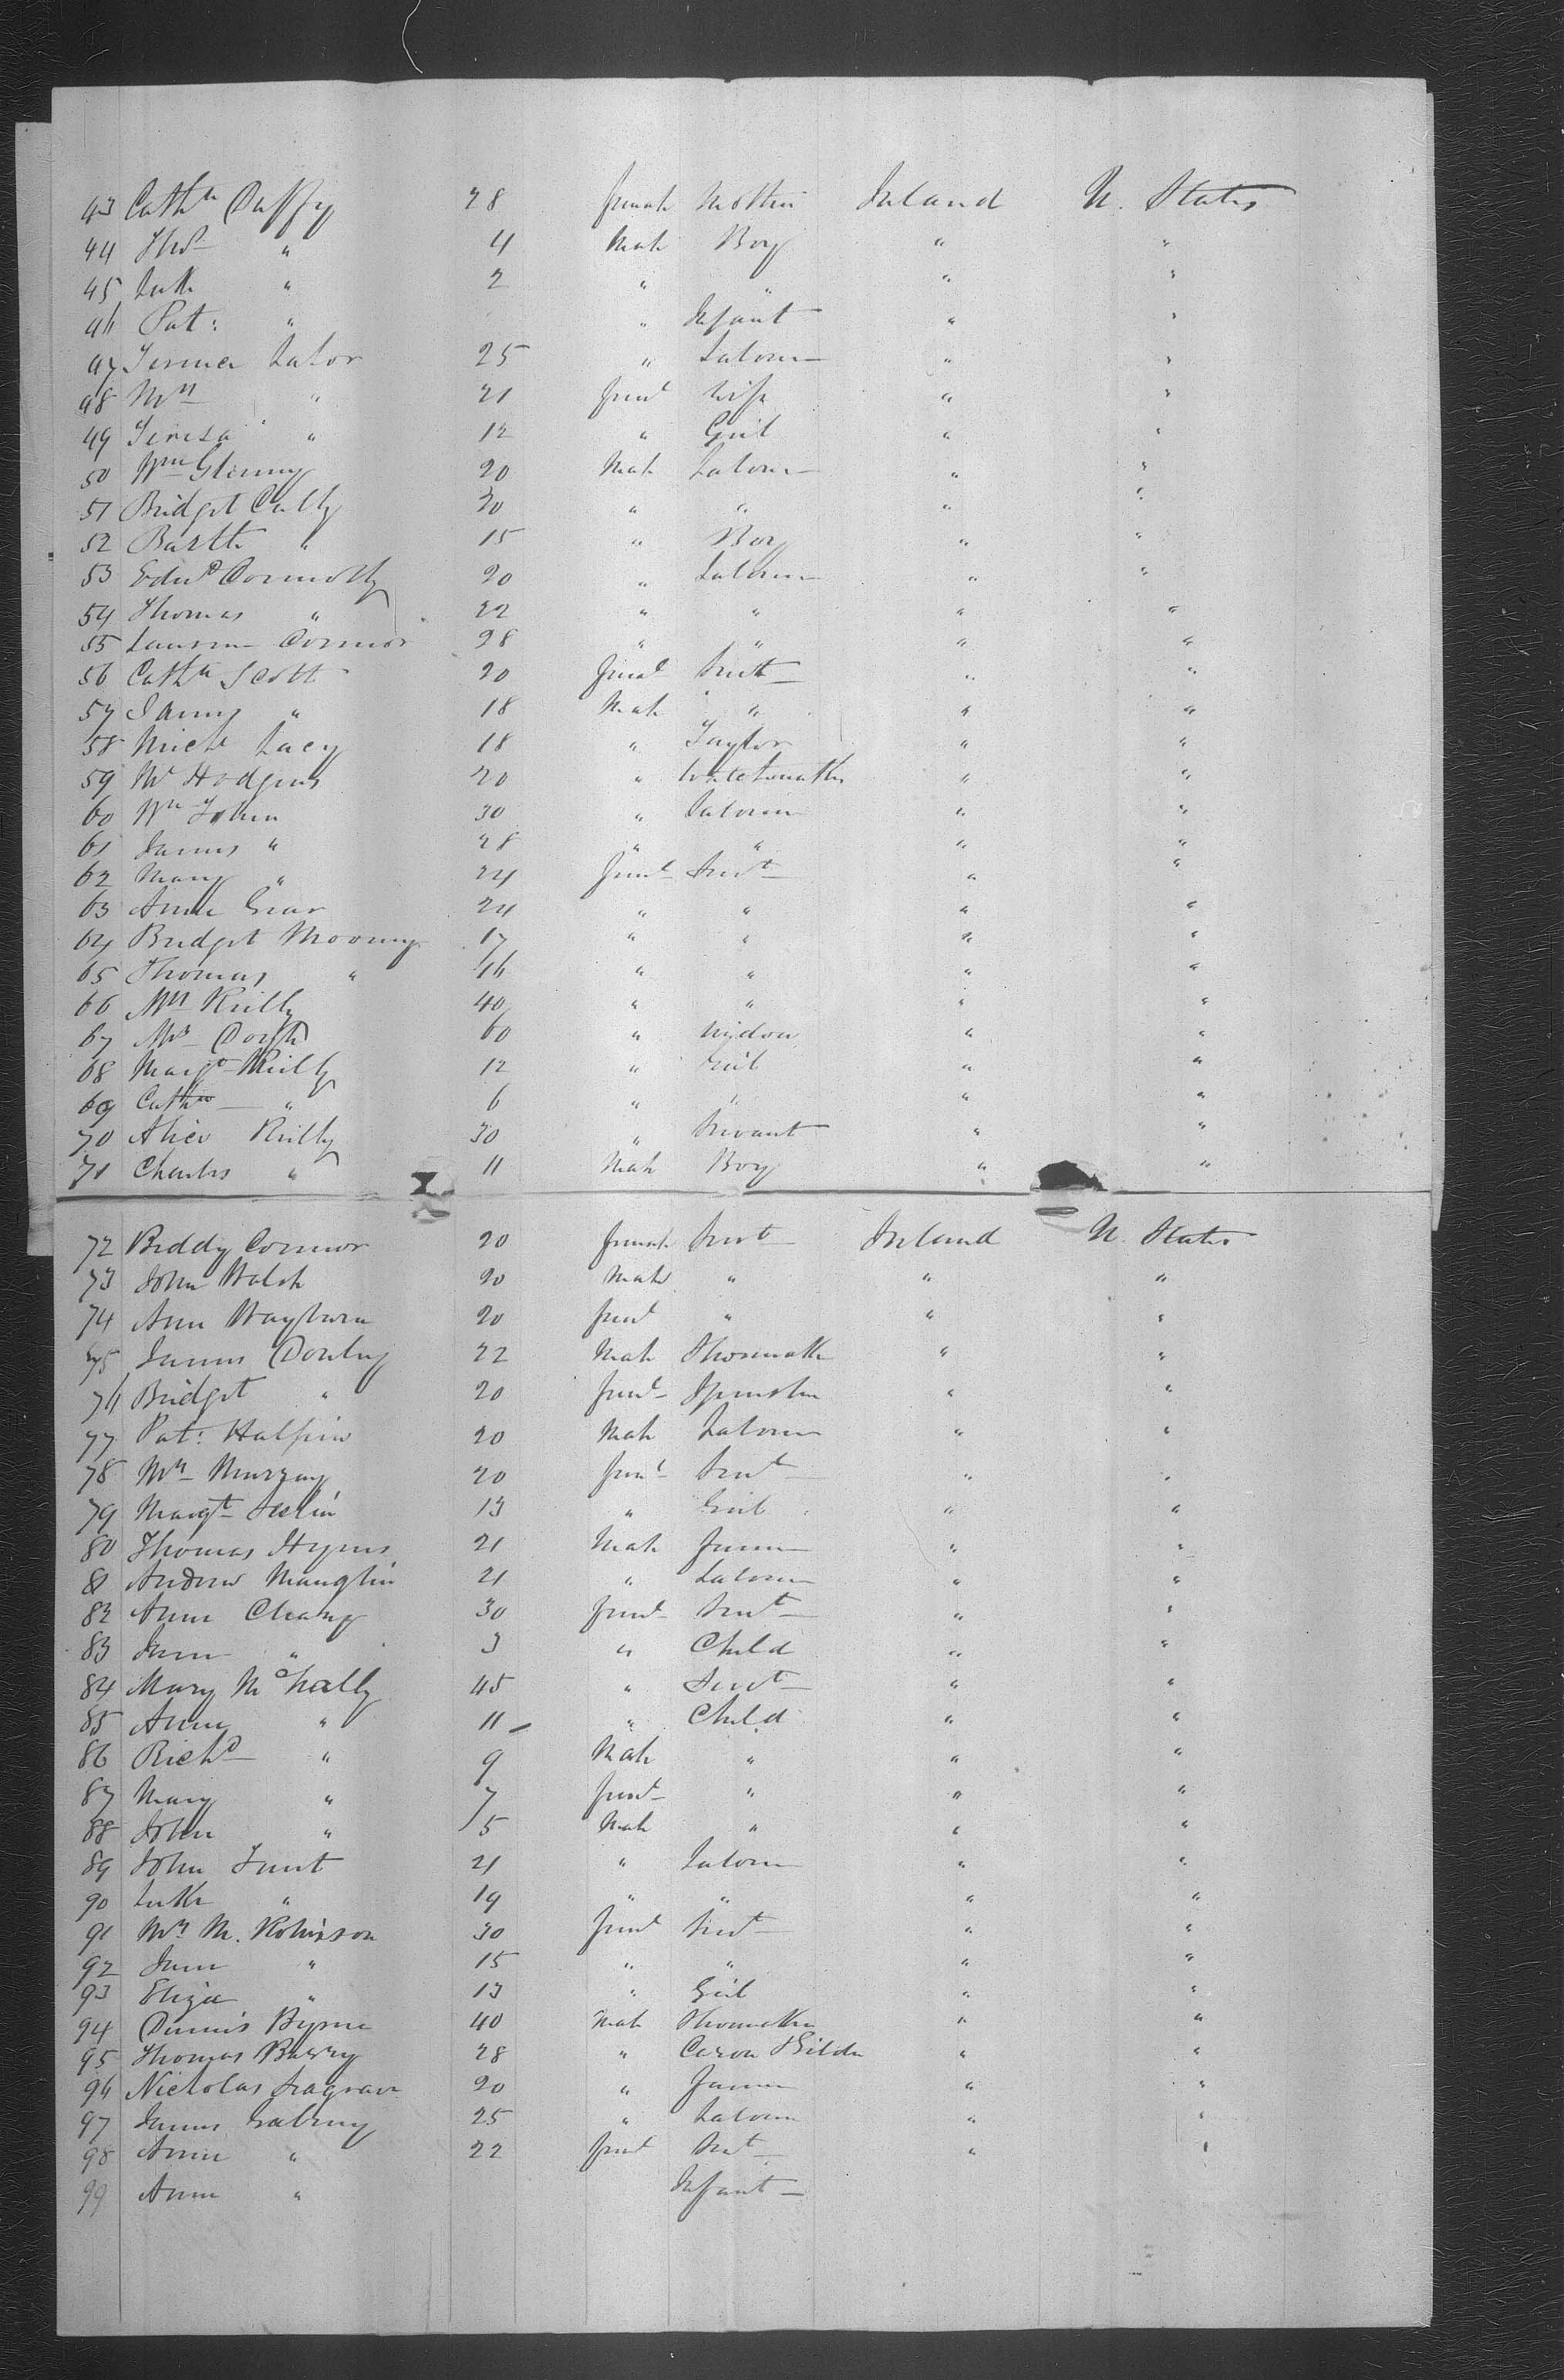 43 Cathn Duffy 28 female Mother Ireland U. States
44 Thos " 4 Male Boy " "
45 Luke " 2 " " " "
46 Pat: " " Infant " "
47 Lalor 25 " Laborer " "
48 Mrs " 21 feml wife " "
49 Teresa " 12 " Girl " "
50 Wm Glenny 20 Male Laborer " "
51 Bridget Cally 30 " " " "
52 Barth " 15 " Boy " "
53 Edwd Connolly 20 " Laborer " "
54 Thomas " 22 " " " "
55 Connor 28 " " " "
56 Cathn Scott 20 femal Servt " "
57 " 18 Male " " "
58 Michl Lacy 18 " Taylor " "
59 Mr Hodgins 20 " " "
60 Wm 30 " Laborer " "
61 James " 28 " " " "
62 Mary " 24 feml Servt " "
63 Anne 24 " " " "
64 Bridget Mooney 17 " " " "
65 Thomas " 16 " " " "
66 Mrs Reilly 40 " " " "
67 Mrs 60 " widow " "
68 Margt Reilly 12 " Girl " "
69 Cathn " 6 " " " "
70 Alice Reilly 30 " Servant " "
71 Charles " 11 Male Boy " "
72 Biddy Connor 20 female Servt Ireland U. States
73 John Walsh 20 Male " " "
74 Ann 20 feml " " "
75 James Dowling 22 Male Shoemaker " "
76 Bridget " 20 feml Spinster " "
77 Pat: Halpin 20 Male Laborer " "
78 Mrs Murray 20 feml Servt " "
79 Margt 13 " Girl " "
80 Thomas 21 Male Farmer " "
81 Andrew Manglin 21 " Laborer " "
82 Anne 30 feml Servt " "
83 Jane " 3 " Child " "
84 Mary McNally 45 " Servt " "
85 Anne " 11 " Child " "
86 Richd " 9 Male " " "
87 Mary " 7 feml " " "
88 John " 5 Male " " "
89 John 21 " Laborer " "
90 Luke " 19 " " " "
91 Mrs M. Robinson 30 feml Servt " "
92 Jane " 15 " " " "
93 Eliza " 13 " Girl " "
94 Dennis Byrne 40 Male Shomaker " "
95 Thomas Barry 28 " " "
96 Nicholas Seagrave 20 " Farmer " "
97 James 25 " Laborer " "
98 Anne " 22 feml Servt " "
99 Anne " Infant